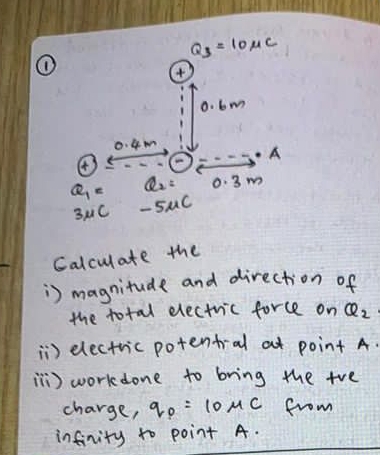 ①
Q₃ = 10 μC
+
0.6m
0.4m
+
−
A
Q₁ =
Q₂ =
0.3 m
3μC
-5μC
Calculate the
i) magnitude and direction of
the total electric force on Q₂.
ii) electric potential at point A.
iii) workdone to bring the +ve
charge, q₀ = 10 μC from
infinity to point A.